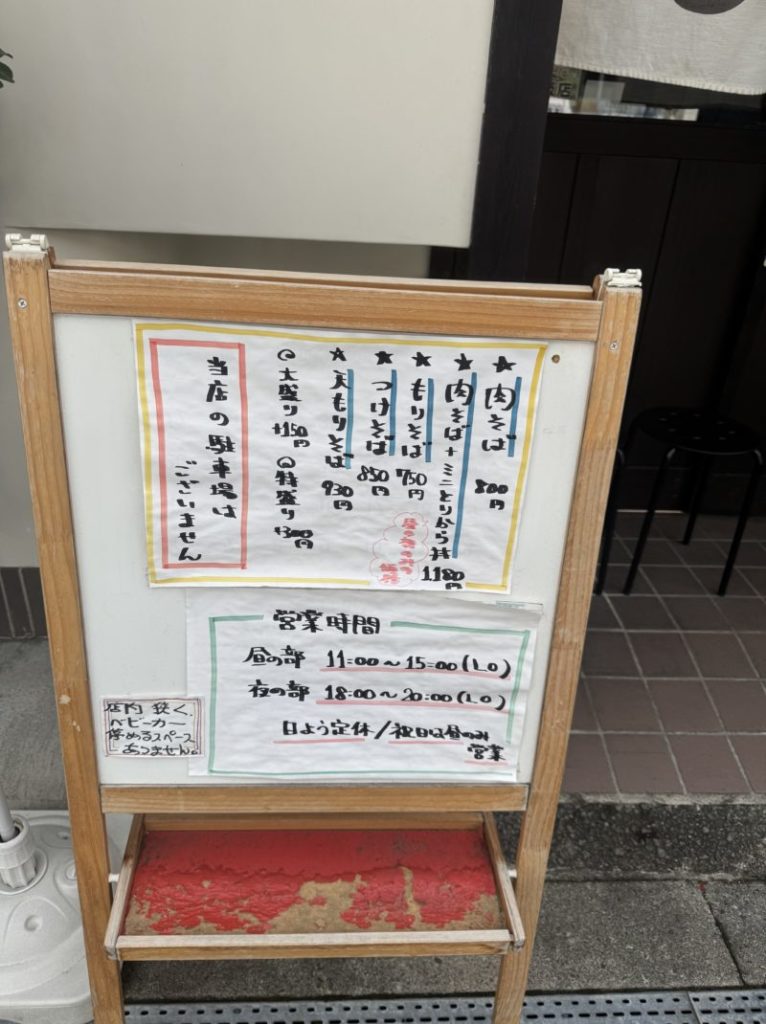 ★肉そば 800
★肉そば+ミニとりから丼 1,180円
★もりそば 750円
★つけそば 850円
★天もりそば 930円
大盛り +150円
特盛り +300円
当店の駐車場は
ございません
営業時間
昼の部 11:00～15:00(LO)
夜の部 18:00～20:00(LO)
日よう定休/祝日は昼のみ
営業
店内 狭く、
ベビーカー
停めるスペース
ありません。